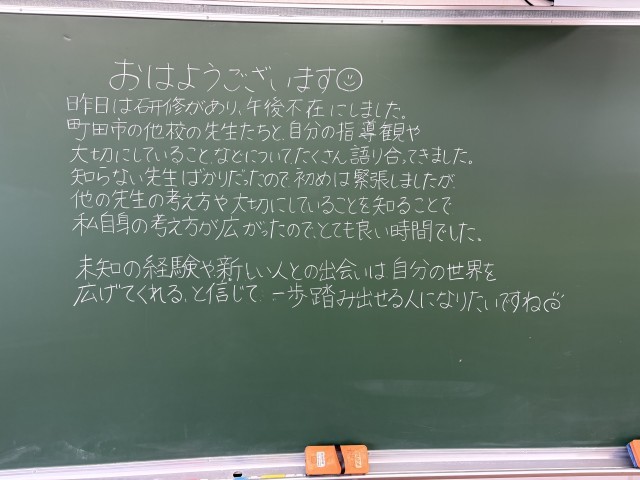 おはようございます☺
昨日は研修があり、午後不在にしました。
町田市の他校の先生たちと、自分の指導観や
大切にしていること、などについて、たくさん語り合ってきました。
知らない先生ばかりだったので、初めは緊張しましたが、
他の先生の考え方や大切にしていることを知ることで
私自身の考え方が広がったので、とても良い時間でした。
未知の経験や新しい人との出会いは自分の世界を
広げてくれる、と信じて、一歩踏み出せる人になりたいですね☺